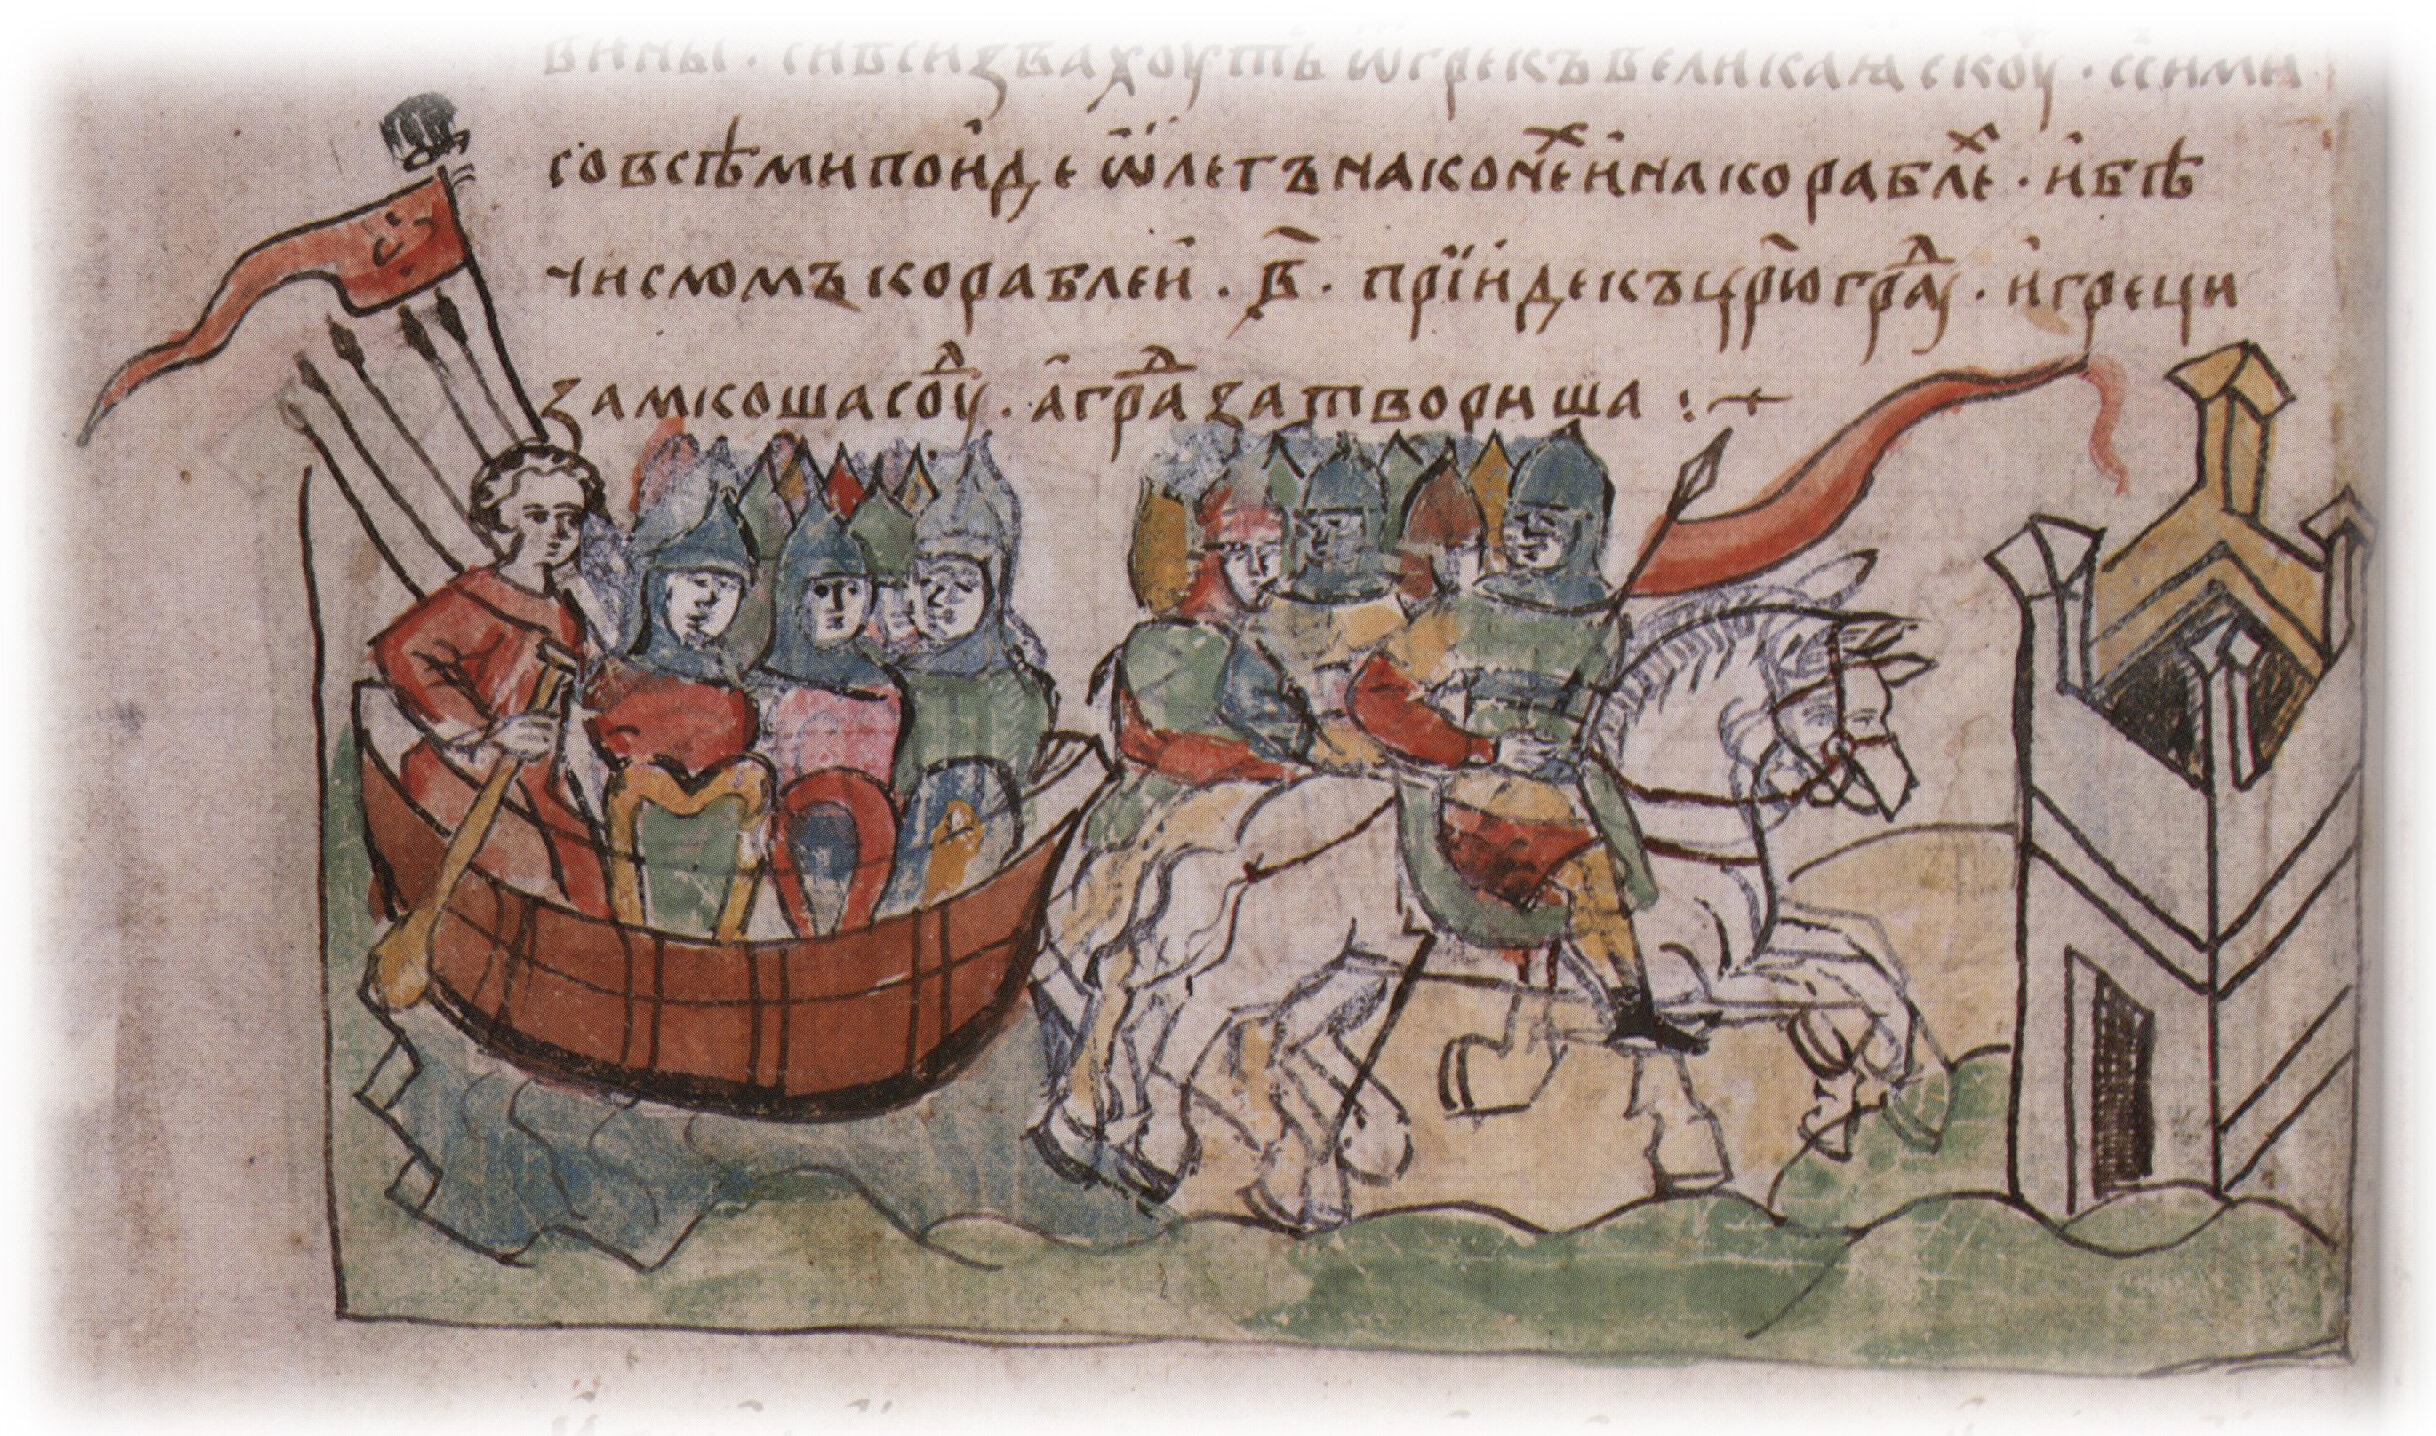 вины · сивсизвахоуть ѿгрекъвеликаꙗскоуѳ · ссими
совсѣмипоиде ѡлегънаконехинакораблех · ибѣ
числомъкораблеи · в҃ · прїидекъцр҃югра д · игреци
замкошасоуд · аград затвориша :+